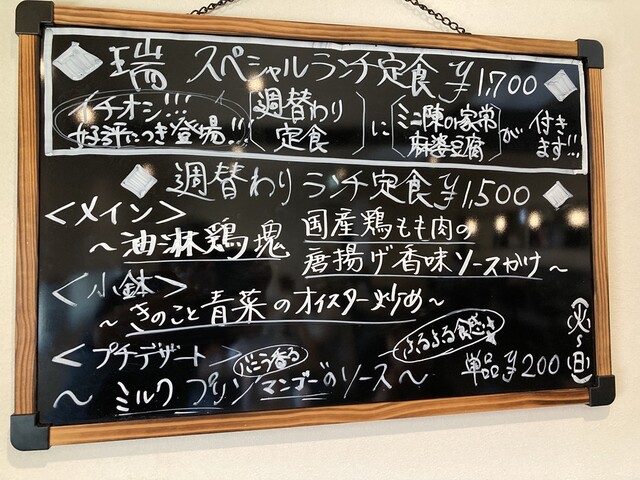 ◇瑞 スペシャルランチ定食 ¥1,700◇
イチオシ!!!
好評につき登場!!
週替わり
定食
に
ミニ陳の家常
麻婆豆腐
が
付き
ます!!!
◇週替わりランチ定食 ¥1,500◇
<メイン>
〜油淋鶏塊 国産鶏もも肉の
唐揚げ香味ソースがけ〜
<小鉢>
〜きのこと青菜のオイスター炒め〜
<プチデザート>
バニラ香る
ふるふる食感☆
〜ミルクプリン マンゴーのソース〜
単品¥200
(火〜日)